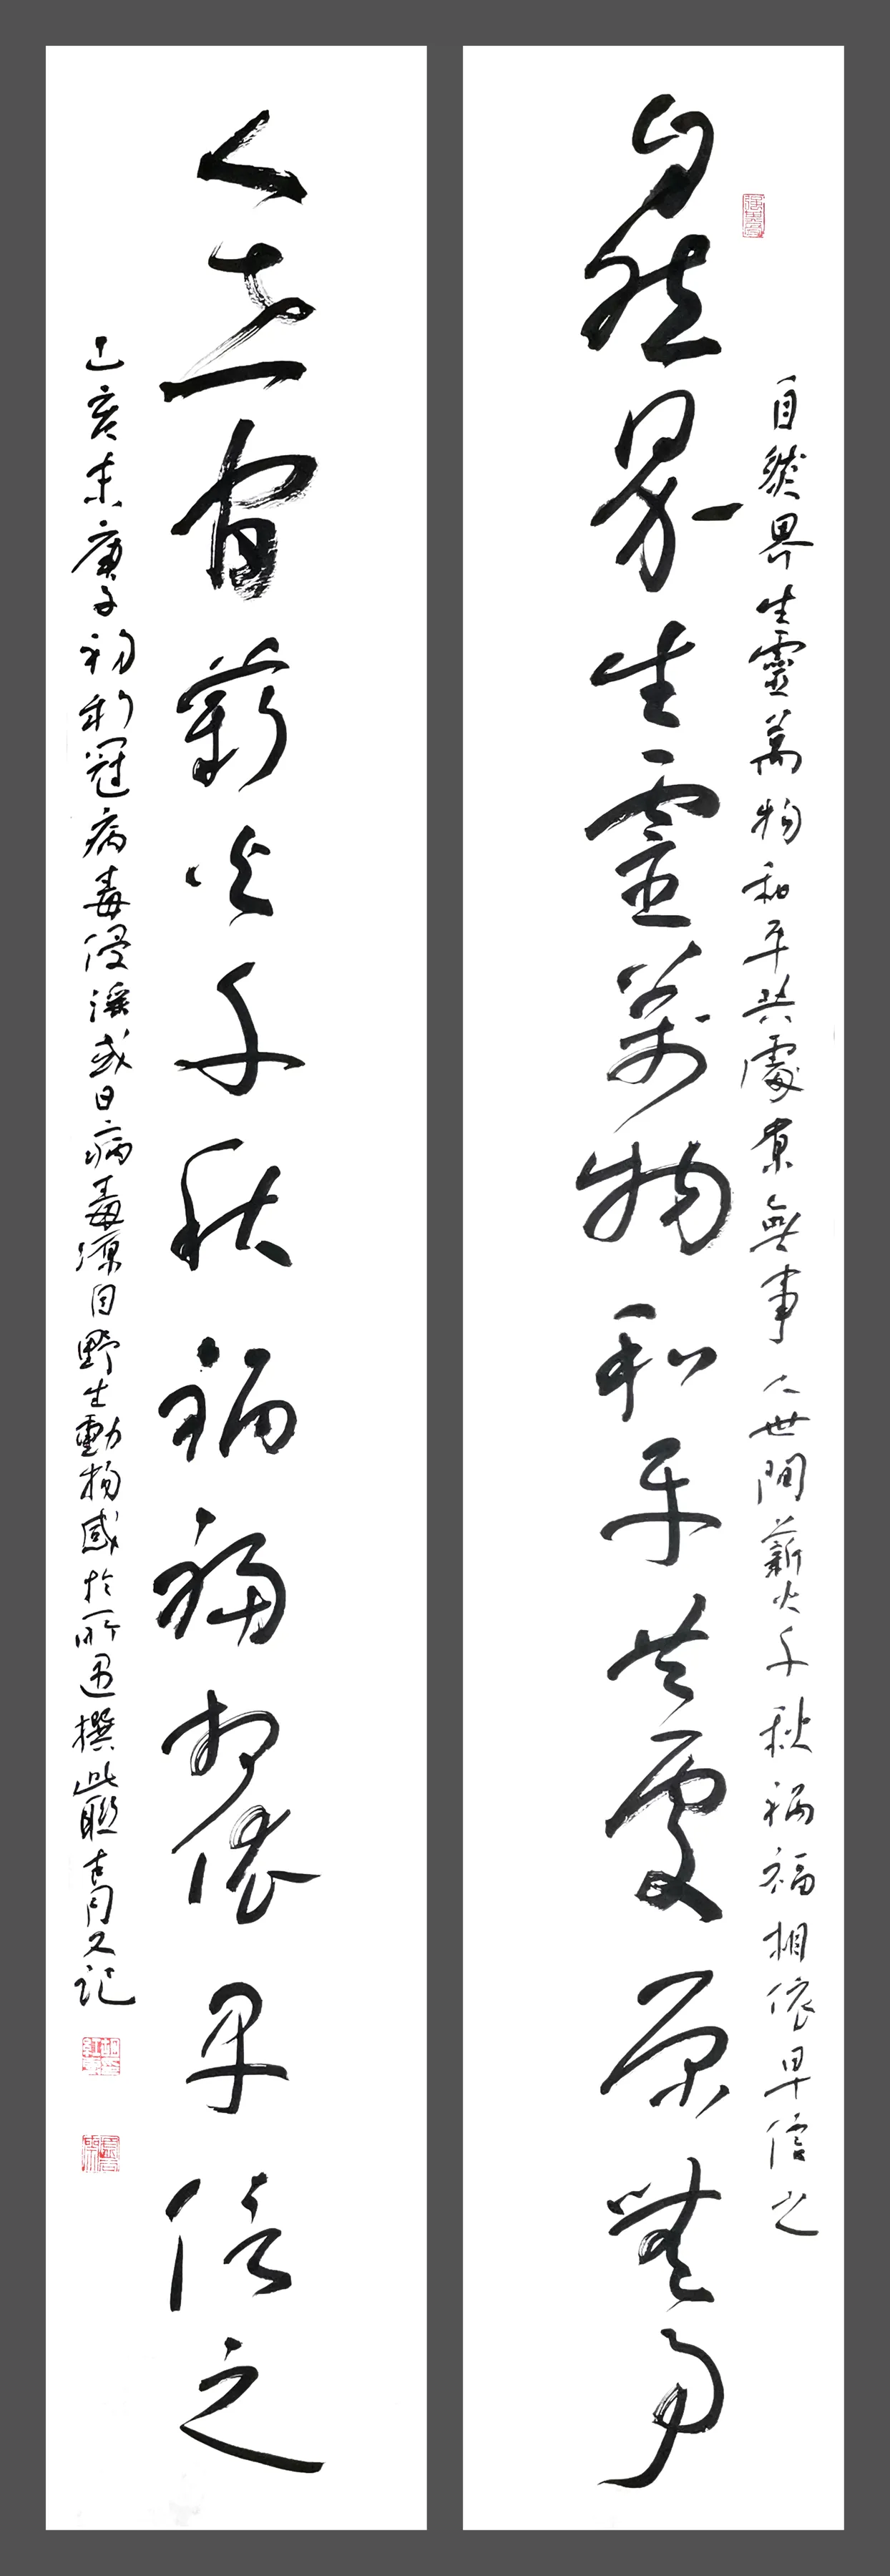 自然界生靈萬物和平共處原無事人世間薪火千秋禍福相依早信之
自然界生靈萬物和平共處原無事
人世間薪火千秋禍福相依早信之
己亥末庚子初新冠病毒侵淫或曰病毒源自野生動物感於所遇撰此聯又記